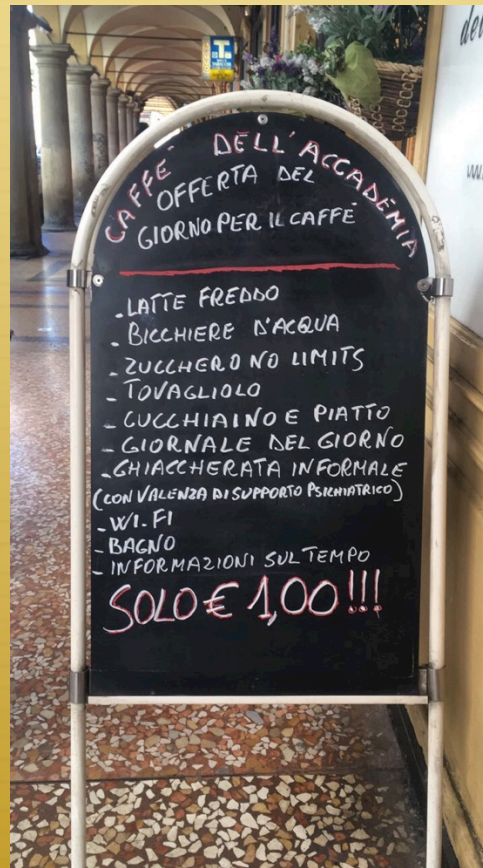 CAFFE' DELL'ACCADEMIA
OFFERTA DEL
GIORNO PER IL CAFFÈ
- LATTE FREDDO
- BICCHIERE D'ACQUA
- ZUCCHERO NO LIMITS
- TOVAGLIOLO
- CUCCHIAINO E PIATTO
- GIORNALE DEL GIORNO
- CHIACCHERATA INFORMALE
(CON VALENZA DI SUPPORTO PSICHIATRICO)
- WI-FI
- BAGNO
- INFORMAZIONI SUL TEMPO
SOLO € 1,00!!!
T